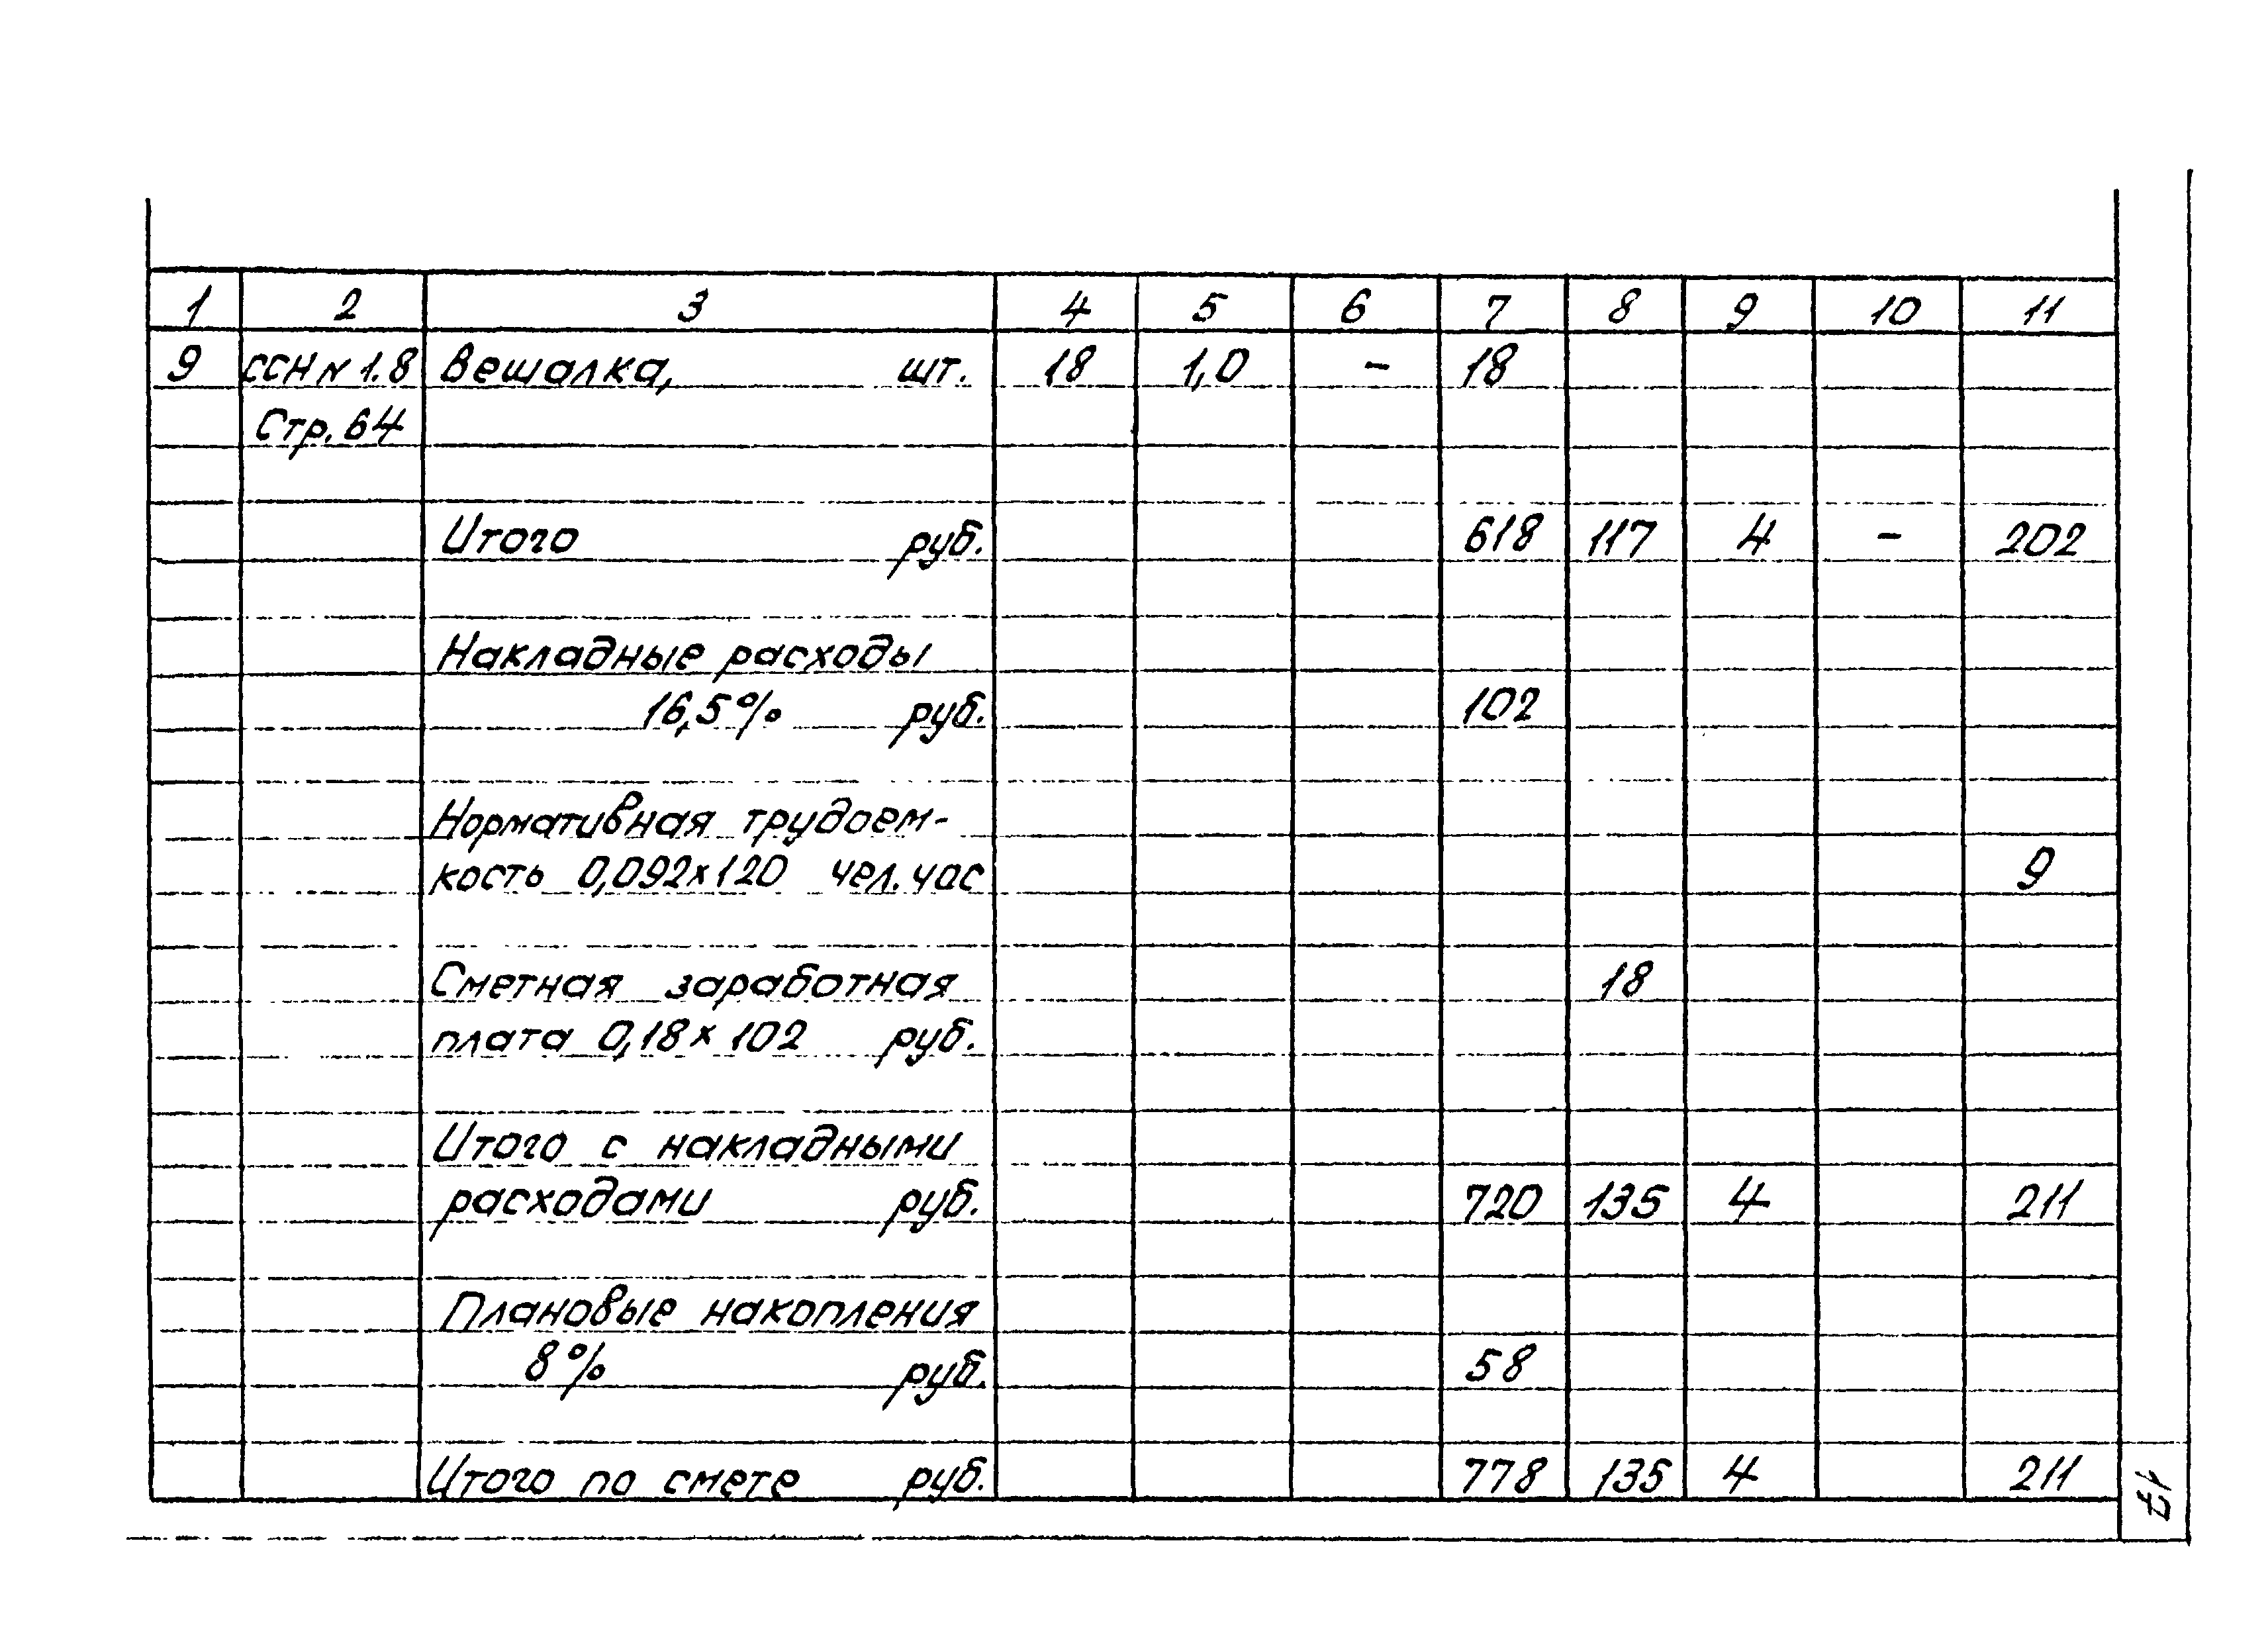 1 2 3 4 5 6 7 8 9 10 11
9 ССН N 1.8 Вешалка, шт. 18 1,0 - 18
Стр. 64
Итого руб. 618 117 4 - 202
Накладные расходы
16,5% руб. 102
Нормативная трудоем-
кость 0,092×120 чел. час 9
Сметная заработная 18
плата 0,18×102 руб.
Итого с накладными
расходами руб. 720 135 4 211
Плановые накопления
8% руб. 58
Итого по смете руб. 778 135 4 211
17